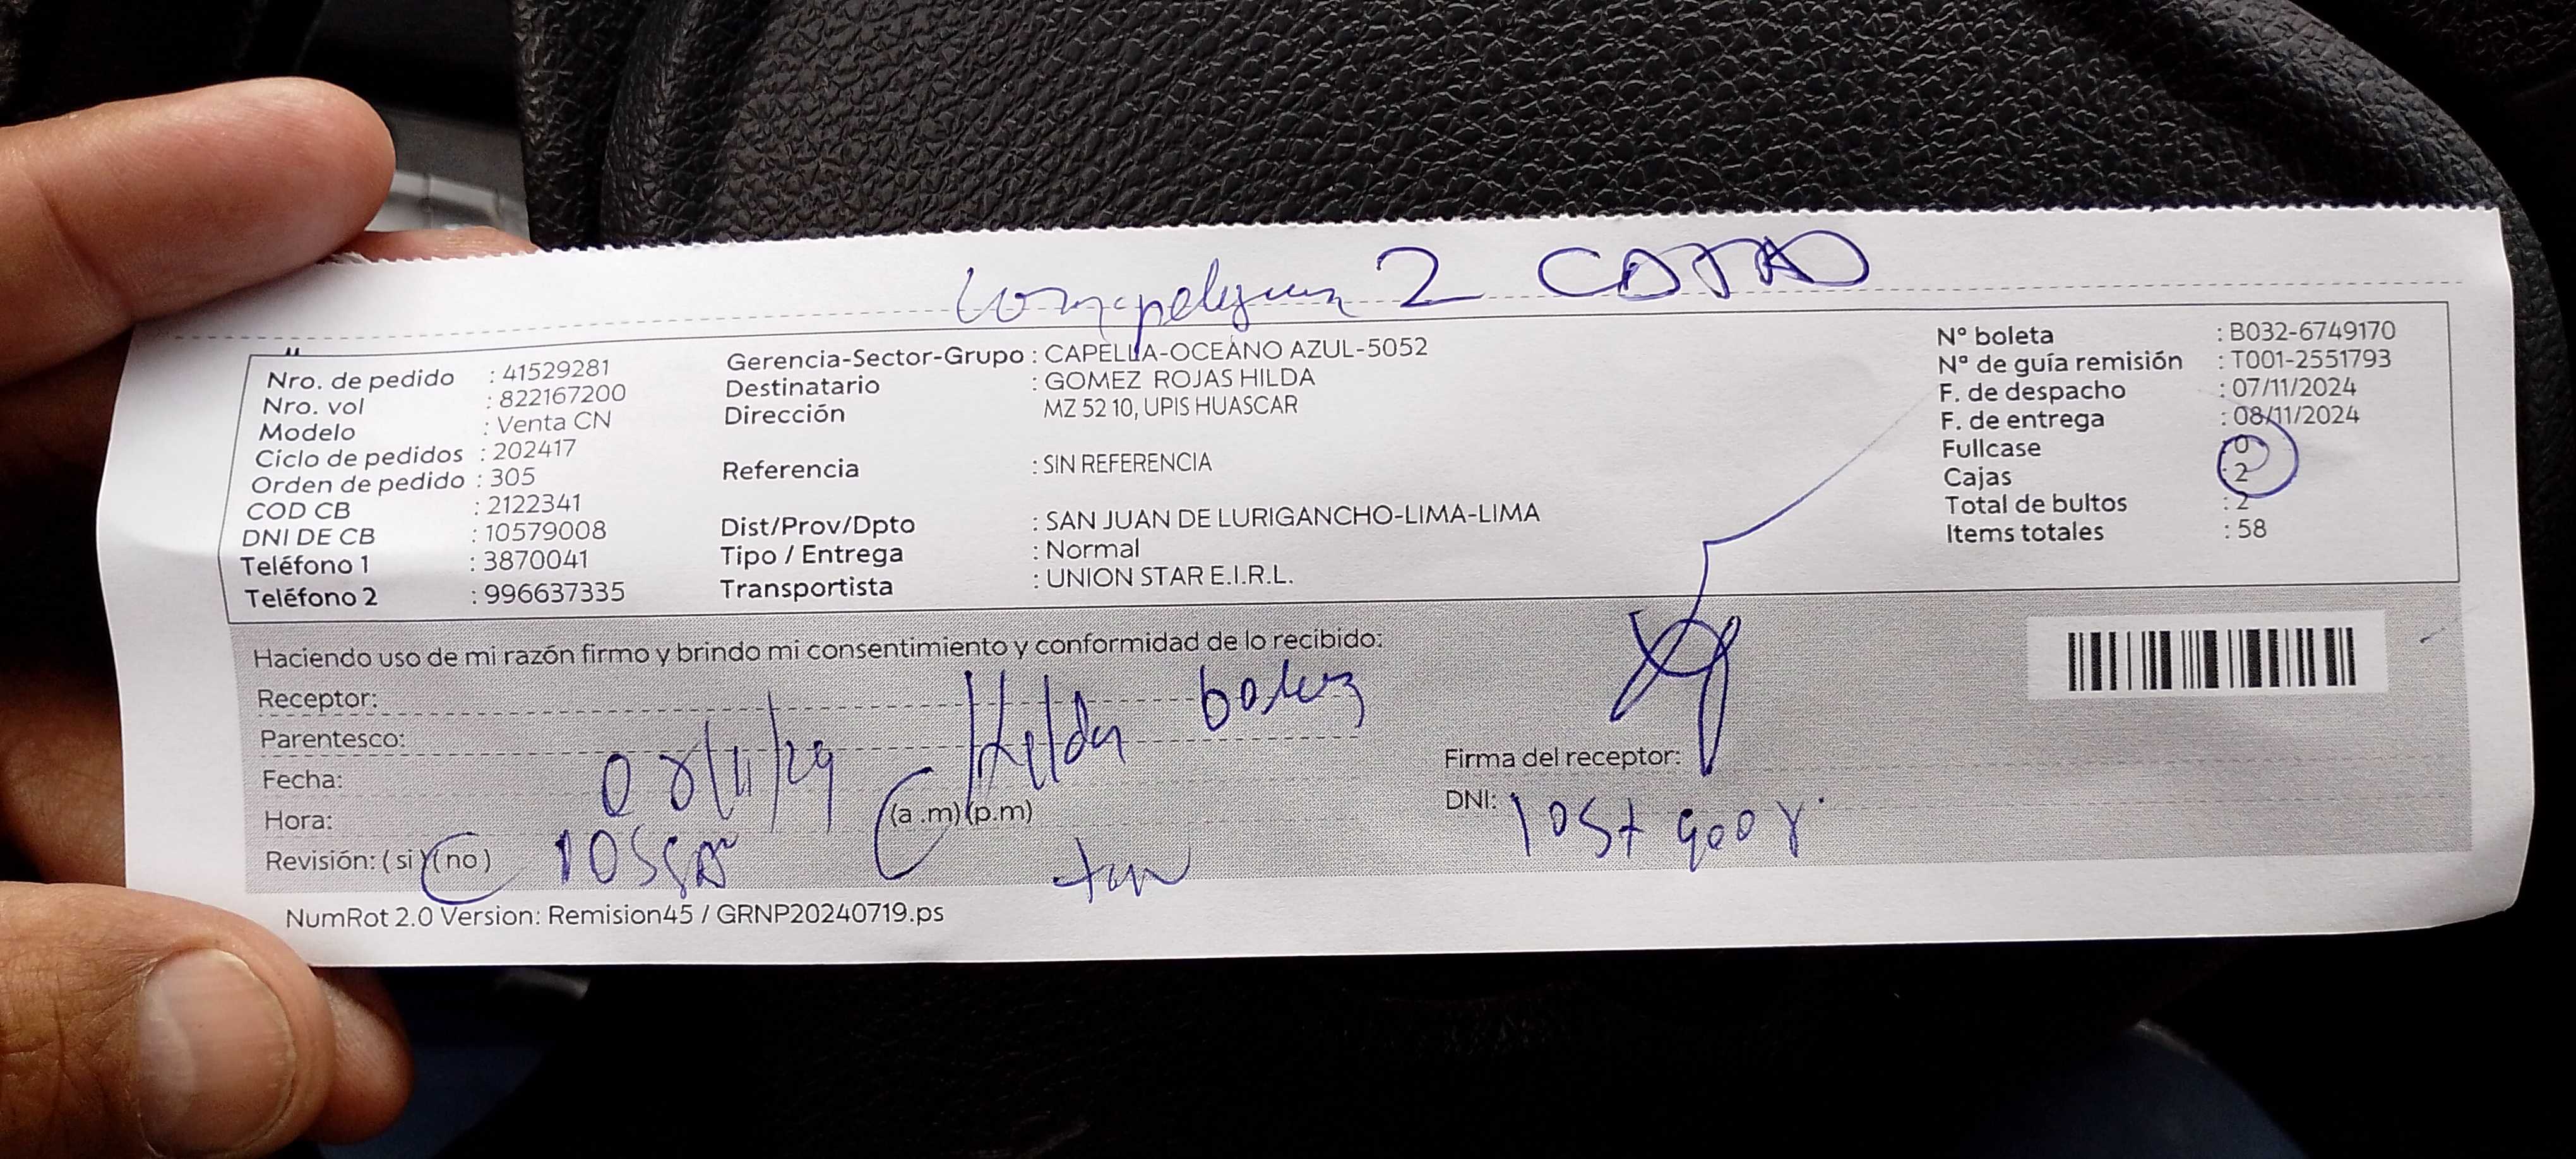 2
Nro. de pedido : 41529281
Nro. vol : 822167200
Modelo : Venta CN
Ciclo de pedidos : 202417
Orden de pedido : 305
COD CB : 2122341
DNI DE CB : 10579008
Teléfono 1 : 3870041
Teléfono 2 : 996637335
Gerencia-Sector-Grupo : CAPELLA-OCEANO AZUL-5052
Destinatario : GOMEZ ROJAS HILDA
Dirección MZ 52 10, UPIS HUASCAR
Referencia : SIN REFERENCIA
Dist/Prov/Dpto : SAN JUAN DE LURIGANCHO-LIMA-LIMA
Tipo / Entrega : Normal
Transportista : UNION STAR E.I.R.L.
N° boleta : B032-6749170
N° de guía remisión : T001-2551793
F. de despacho : 07/11/2024
F. de entrega : 08/11/2024
Fullcase : 0
Cajas : 2
Total de bultos : 2
Items totales : 58
Haciendo uso de mi razón firmo y brindo mi consentimiento y conformidad de lo recibido:
Receptor: Hilda
Parentesco:
Fecha: 08/11/24
Hora: (a .m) (p.m)
Revisión: ( si )( no )
Firma del receptor:
DNI: 10579008
NumRot 2.0 Version: Remision45 / GRNP20240719.ps